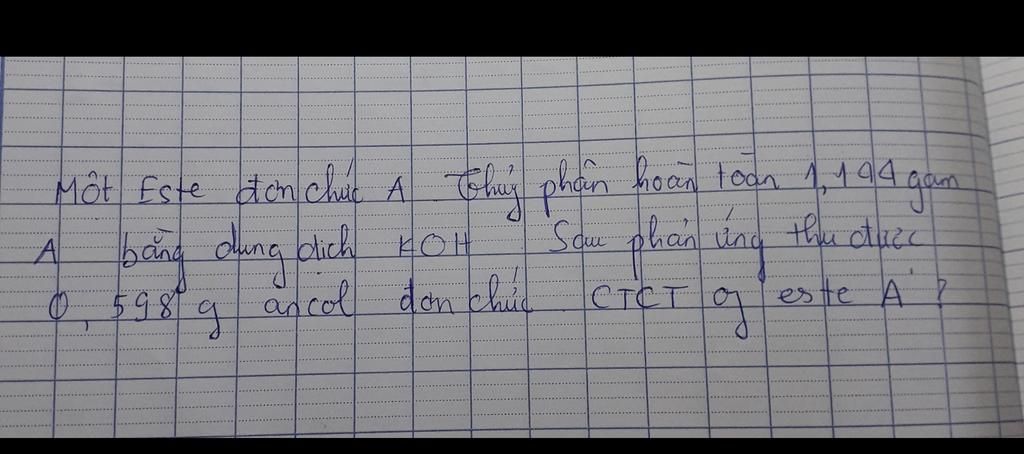 Một Este đơn chức A Thủy phân hoàn toàn 1,144 gam
A bằng dung dịch KOH Sau phản ứng thu được
0,598 g ancol đơn chức CTCT of este A?